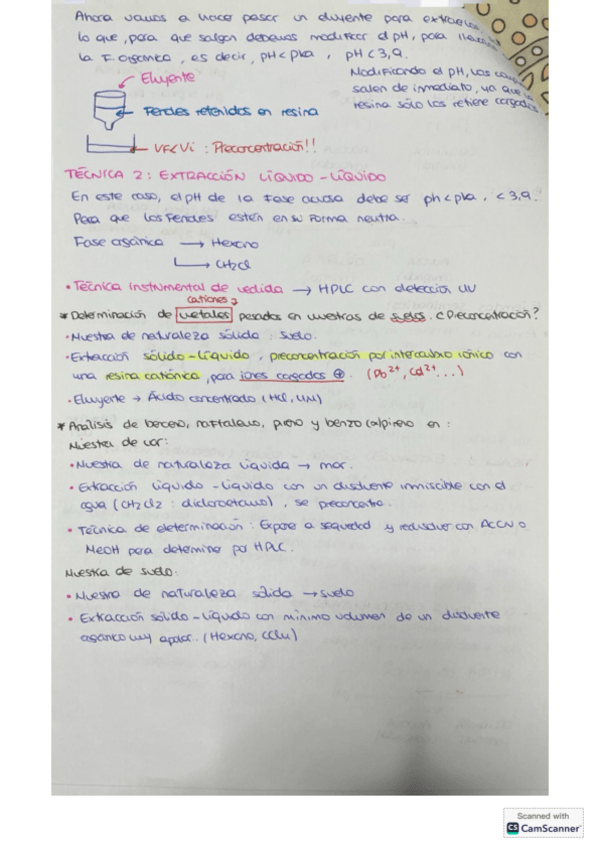 Ahora vamos a hacer pasar un eluyente para extraerlos,
lo que, para que salgan debemos modificar el pH, para llevarlos
la F. orgánica, es decir, pH < pka, pH < 3,9.
Eluyente
Modificando el pH, los
salen de inmediato, ya que
Fenoles retenidos en resina
resina sólo los retiene cargados
VF<Vi : Preconcentración!!
TÉCNICA 2: EXTRACCIÓN LÍQUIDO-LÍQUIDO
En este caso, el pH de la fase acuosa debe ser ph<pka, <3,9.
Para que los Fenoles estén en su forma neutra.
Fase orgánica → Hexano
→ CH2Cl
• Técnica instrumental de medida → HPLC con detección UV
cationes
* Determinación de metales pesados en muestras de suelos. ¿Preconcentración?
• Muestra de naturaleza sólida: suelo.
• Extracción sólido-líquido, preconcentración por intercambio iónico con
una resina catiónica, para iones cargados ⊕. (Pb2+, Cd2+ ...)
• Eluyente → Ácido concentrado (HCl, 4M)
* Análisis de benceno, naftaleno, pireno y benzo(a)pireno en:
Muestra de mar:
• Muestra de naturaleza líquida → mar.
• Extracción líquido-líquido con un disolvente inmiscible con el
agua (CH2Cl2: diclorometano), se preconcentra.
• Técnica de determinación: Evapore a sequedad y redisolver con ACCN o
MeOH para determinar por HPLC.
Muestra de suelo:
• Muestra de naturaleza sólida → suelo
• Extracción sólido-líquido con mínimo volumen de un disolvente
orgánico muy apolar. (Hexano, CCl4)
Scanned with
CS CamScanner